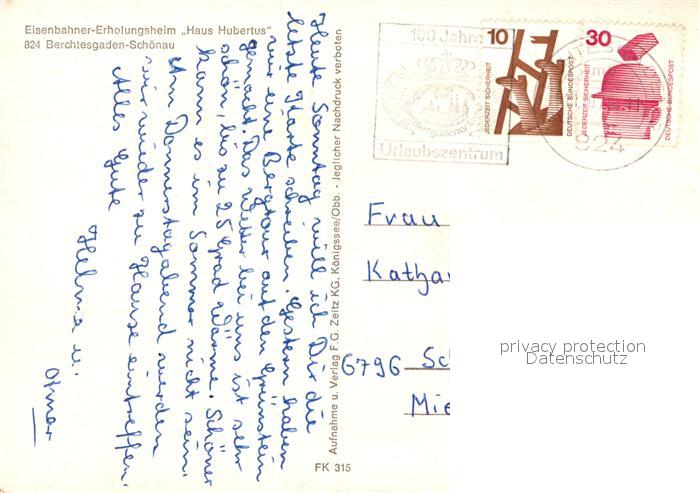 Eisenbahner-Erholungsheim „Haus Hubertus"
824 Berchtesgaden-Schönau
Heute Sonntag will ich Dir die
letzte Karte schreiben. Gestern haben
wir eine Bergtour auf den Grünstein
gemacht. Das Wetter bei uns ist sehr
schön, bis zu 25 Grad Wärme. Schöner
kann es im Sommer nicht sein.
Am Donnerstagabend werden
wir wieder zu Hause eintreffen.
Alles Gute
Helma u.
Otmar
Aufnahme u. Verlag F.G. Zeitz KG, Königssee/Obb. - Jeglicher Nachdruck verboten
FK 315
100 Jahre
Urlaubszentrum
10
JEDERZEIT SICHERHEIT
DEUTSCHE BUNDESPOST
30
JEDERZEIT SICHERHEIT
DEUTSCHE BUNDESPOST
824
Frau
Kathar
6796 Sc
Mie
privacy protection
Datenschutz